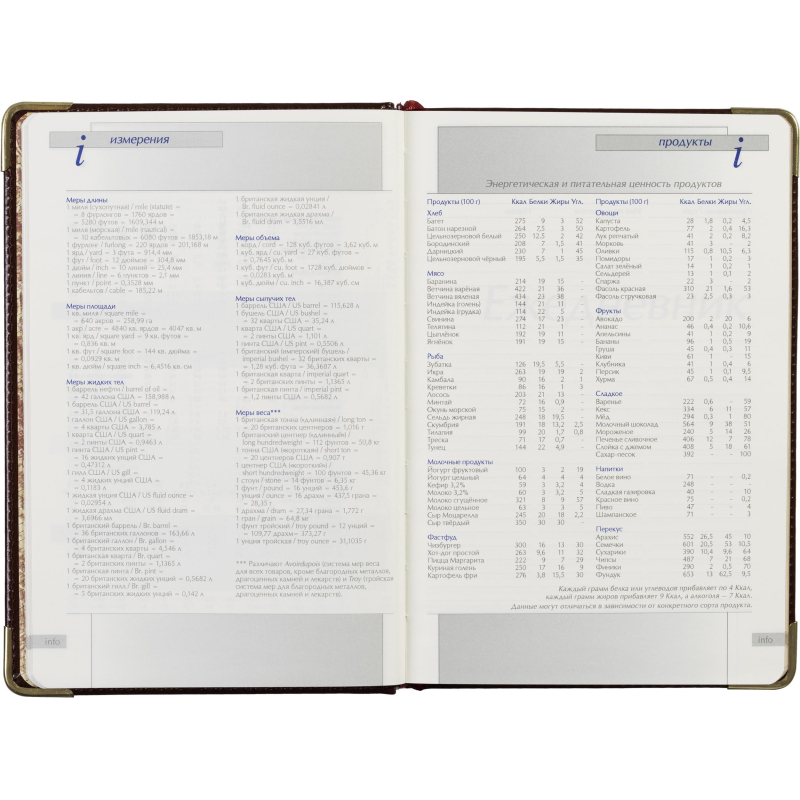 i измерения
Меры длины
1 миля (сухопутная) / mile (statute) =
= 8 фурлонгов = 1760 ярдов =
= 5280 футов = 1609,344 м
1 миля (морская) / mile (nautical) =
= 10 кабельтовых = 6080 футов = 1853,18 м
1 фурлонг / furlong = 220 ярдов = 201,168 м
1 ярд / yard = 3 фута = 914,4 мм
1 фут / foot = 12 дюймов = 304,8 мм
1 дюйм / inch = 10 линий = 25,4 мм
1 линия / line = 6 пунктов = 2,1 мм
1 пункт / point = 0,3528 мм
1 кабельтов / cable = 185,22 м
Меры площади
1 кв. миля / square mile =
= 640 акров = 258,99 га
1 акр / acre = 4840 кв. ярдов = 4047 кв. м
1 кв. ярд / square yard = 9 кв. футов =
= 0,836 кв. м
1 кв. фут / square foot = 144 кв. дюйма =
= 0,0929 кв. м
1 кв. дюйм / square inch = 6,4516 кв. см
Меры жидких тел
1 баррель нефти / barrel of oil =
= 42 галлона США = 158,988 л
1 баррель США / US barrel =
= 31,5 галлона США = 119,24 л
1 галлон США / US gallon =
= 4 кварты США = 3,785 л
1 кварта США / US quart =
= 2 пинты США = 0,9463 л
1 пинта США / US pint =
= 16 жидких унций США =
= 0,47312 л
1 гилл США / US gill =
= 4 жидких унций США =
= 0,1183 л
1 жидкая унция США / US fluid ounce =
= 0,02954 л
1 жидкая драхма США / US fluid dram =
= 3,6966 мл
1 британский баррель / Br. barrel =
= 36 британских галлонов = 163,66 л
1 британский галлон / Br. gallon =
= 4 британских кварты = 4,546 л
1 британская кварта / Br. quart =
= 2 британских пинты = 1,1365 л
1 британская пинта / Br. pint =
= 20 британских жидких унций = 0,5682 л
1 британский гилл / Br. gill =
= 5 британских жидких унций = 0,142 л
1 британская жидкая унция /
Br. fluid ounce = 0,02841 л
1 британская жидкая драхма /
Br. fluid dram = 3,5516 мл
Меры объема
1 корд / cord = 128 куб. футов = 3,62 куб. м
1 куб. ярд / cu. yard = 27 куб. футов =
= 0,7645 куб. м
1 куб. фут / cu. foot = 1728 куб. дюймов =
= 0,0283 куб. м
1 куб. дюйм / cu. inch = 16,387 куб. см
Меры сыпучих тел
1 баррель США / US barrel = 115,628 л
1 бушель США / US bushel =
= 32 кварты США = 35,24 л
1 кварта США / US quart =
= 2 пинты США = 1,101 л
1 пинта США / US pint = 0,5506 л
1 британский (имперский) бушель /
imperial bushel = 32 британских кварты =
= 1,28 куб. фута = 36,3687 л
1 британская кварта / imperial quart =
= 2 британских пинты = 1,1365 л
1 британская пинта / imperial pint =
= 1,2 пинты США = 0,5682 л
Меры веса***
1 британская тонна (удлиненная) / long ton =
= 20 британских центнеров = 1,016 т
1 британский центнер (удлиненный) /
long hundredweight = 112 фунтов = 50,8 кг
1 тонна США (короткая) / short ton =
= 20 центнеров США = 0,907 т
1 центнер США (короткий) /
short hundredweight = 100 фунтов = 45,36 кг
1 стоун / stone = 14 фунтов = 6,35 кг
1 фунт / pound = 16 унций = 453,6 г
1 унция / ounce = 16 драхм = 437,5 грана =
= 28,35 г
1 драхма / dram = 27,34 грана = 1,772 г
1 гран / grain = 64,8 мг
1 фунт тройский / troy pound = 12 унций =
= 109,77 драхм = 373,27 г
1 унция тройская / troy ounce = 31,1035 г
*** Различают Avoirdupois (система мер веса
для всех товаров, кроме благородных металлов,
драгоценных камней и лекарств) и Troy (тройская
система мер для благородных металлов,
драгоценных камней и лекарств).
info
продукты i
Энергетическая и питательная ценность продуктов
Продукты (100 г) Ккал Белки Жиры Угл.
Хлеб
Багет 275 9 3 52
Батон нарезной 264 7,5 3 50
Цельнозерновой белый 250 12,5 2 42
Бородинский 208 7 1,5 41
Дарницкий 230 7 1 45
Цельнозерновой чёрный 195 5,5 1,5 35
Мясо
Баранина 214 19 15 –
Ветчина варёная 422 21 36 –
Ветчина вяленая 434 23 38 –
Индейка (голень) 144 21 11 –
Индейка (грудка) 114 22 5 –
Свинина 274 17 23 –
Телятина 112 21 1 –
Цыплёнок 192 19 11 –
Ягнёнок 191 19 15 –
Рыба
Зубатка 126 19,5 5,5 –
Икра 263 19 19 2
Камбала 90 16 2 1
Креветки 86 16 1 3
Лосось 203 21 13 –
Минтай 72 16 0,9 –
Окунь морской 75 15 2 –
Сельдь жирная 248 18 19,5 –
Скумбрия 191 18 13,2 2,5
Тилапия 99 20 1,7 0,8
Треска 71 17 0,7 –
Тунец 144 22 4,9 –
Молочные продукты
Йогурт фруктовый 100 3 2 19
Йогурт цельный 64 4 4 4
Кефир 3,2% 59 3 3,2 4
Молоко 3,2% 60 3 3,2 5
Молоко сгущённое 321 8 9 57
Молоко цельное 63 3 3 5
Сыр Моцарелла 245 20 18 2,2
Сыр твёрдый 350 30 30 –
Фастфуд
Чизбургер 300 16 13 30
Хот-дог простой 263 9,6 11 32
Пицца Маргарита 222 9 7 29
Куриная голень 250 17 16 9
Картофель фри 276 3,8 15,5 30
Продукты (100 г) Ккал Белки Жиры Угл.
Овощи
Капуста 28 1,8 0,2 4,5
Картофель 77 2 0,4 16,3
Лук репчатый 41 2 0,2 8,2
Морковь 41 3 – 2
Оливки 115 0,8 10,5 6,3
Помидоры 17 1 0,2 3
Салат зелёный 14 1 0,2 1
Сельдерей 13 1 0,1 2
Спаржа 22 3 – 2
Фасоль красная 310 21 1,6 53
Фасоль стручковая 23 2,5 0,3 3
Фрукты
Авокадо 200 2 20 6
Ананас 46 0,4 0,2 10,6
Апельсины 41 1 0,2 9
Бананы 96 1 0,5 19
Груша 45 0,4 0,3 11
Киви 61 1 – 15
Клубника 41 1 0,4 6
Персик 45 1 0,1 9,5
Хурма 67 0,5 0,4 14
Сладкое
Варенье 222 0,6 – 59
Кекс 334 6 11 57
Мёд 294 0,3 1 80
Молочный шоколад 564 9 38 51
Мороженое 240 5 14 26
Печенье сливочное 406 12 7 78
Слойка с джемом 408 5 18 61
Сахар-песок 392 – – 100
Напитки
Белое вино 71 – – 0,2
Водка 248 – – –
Сладкая газировка 40 – – 10
Красное вино 75 – – 0,2
Пиво 47 – – 4
Шампанское 71 – – 3
Перекус
Арахис 552 26,5 45 10
Семечки 601 20,5 53 10,5
Сухарики 390 10,4 9,6 64
Чипсы 487 7 21 68
Финики 290 2 0,5 70
Фундук 653 13 62,5 9,5
Каждый грамм белка или углеводов прибавляет по 4 Ккал,
каждый грамм жиров прибавляет 9 Ккал, а алкоголя – 7 Ккал.
Данные могут отличаться в зависимости от конкретного сорта продукта.
info